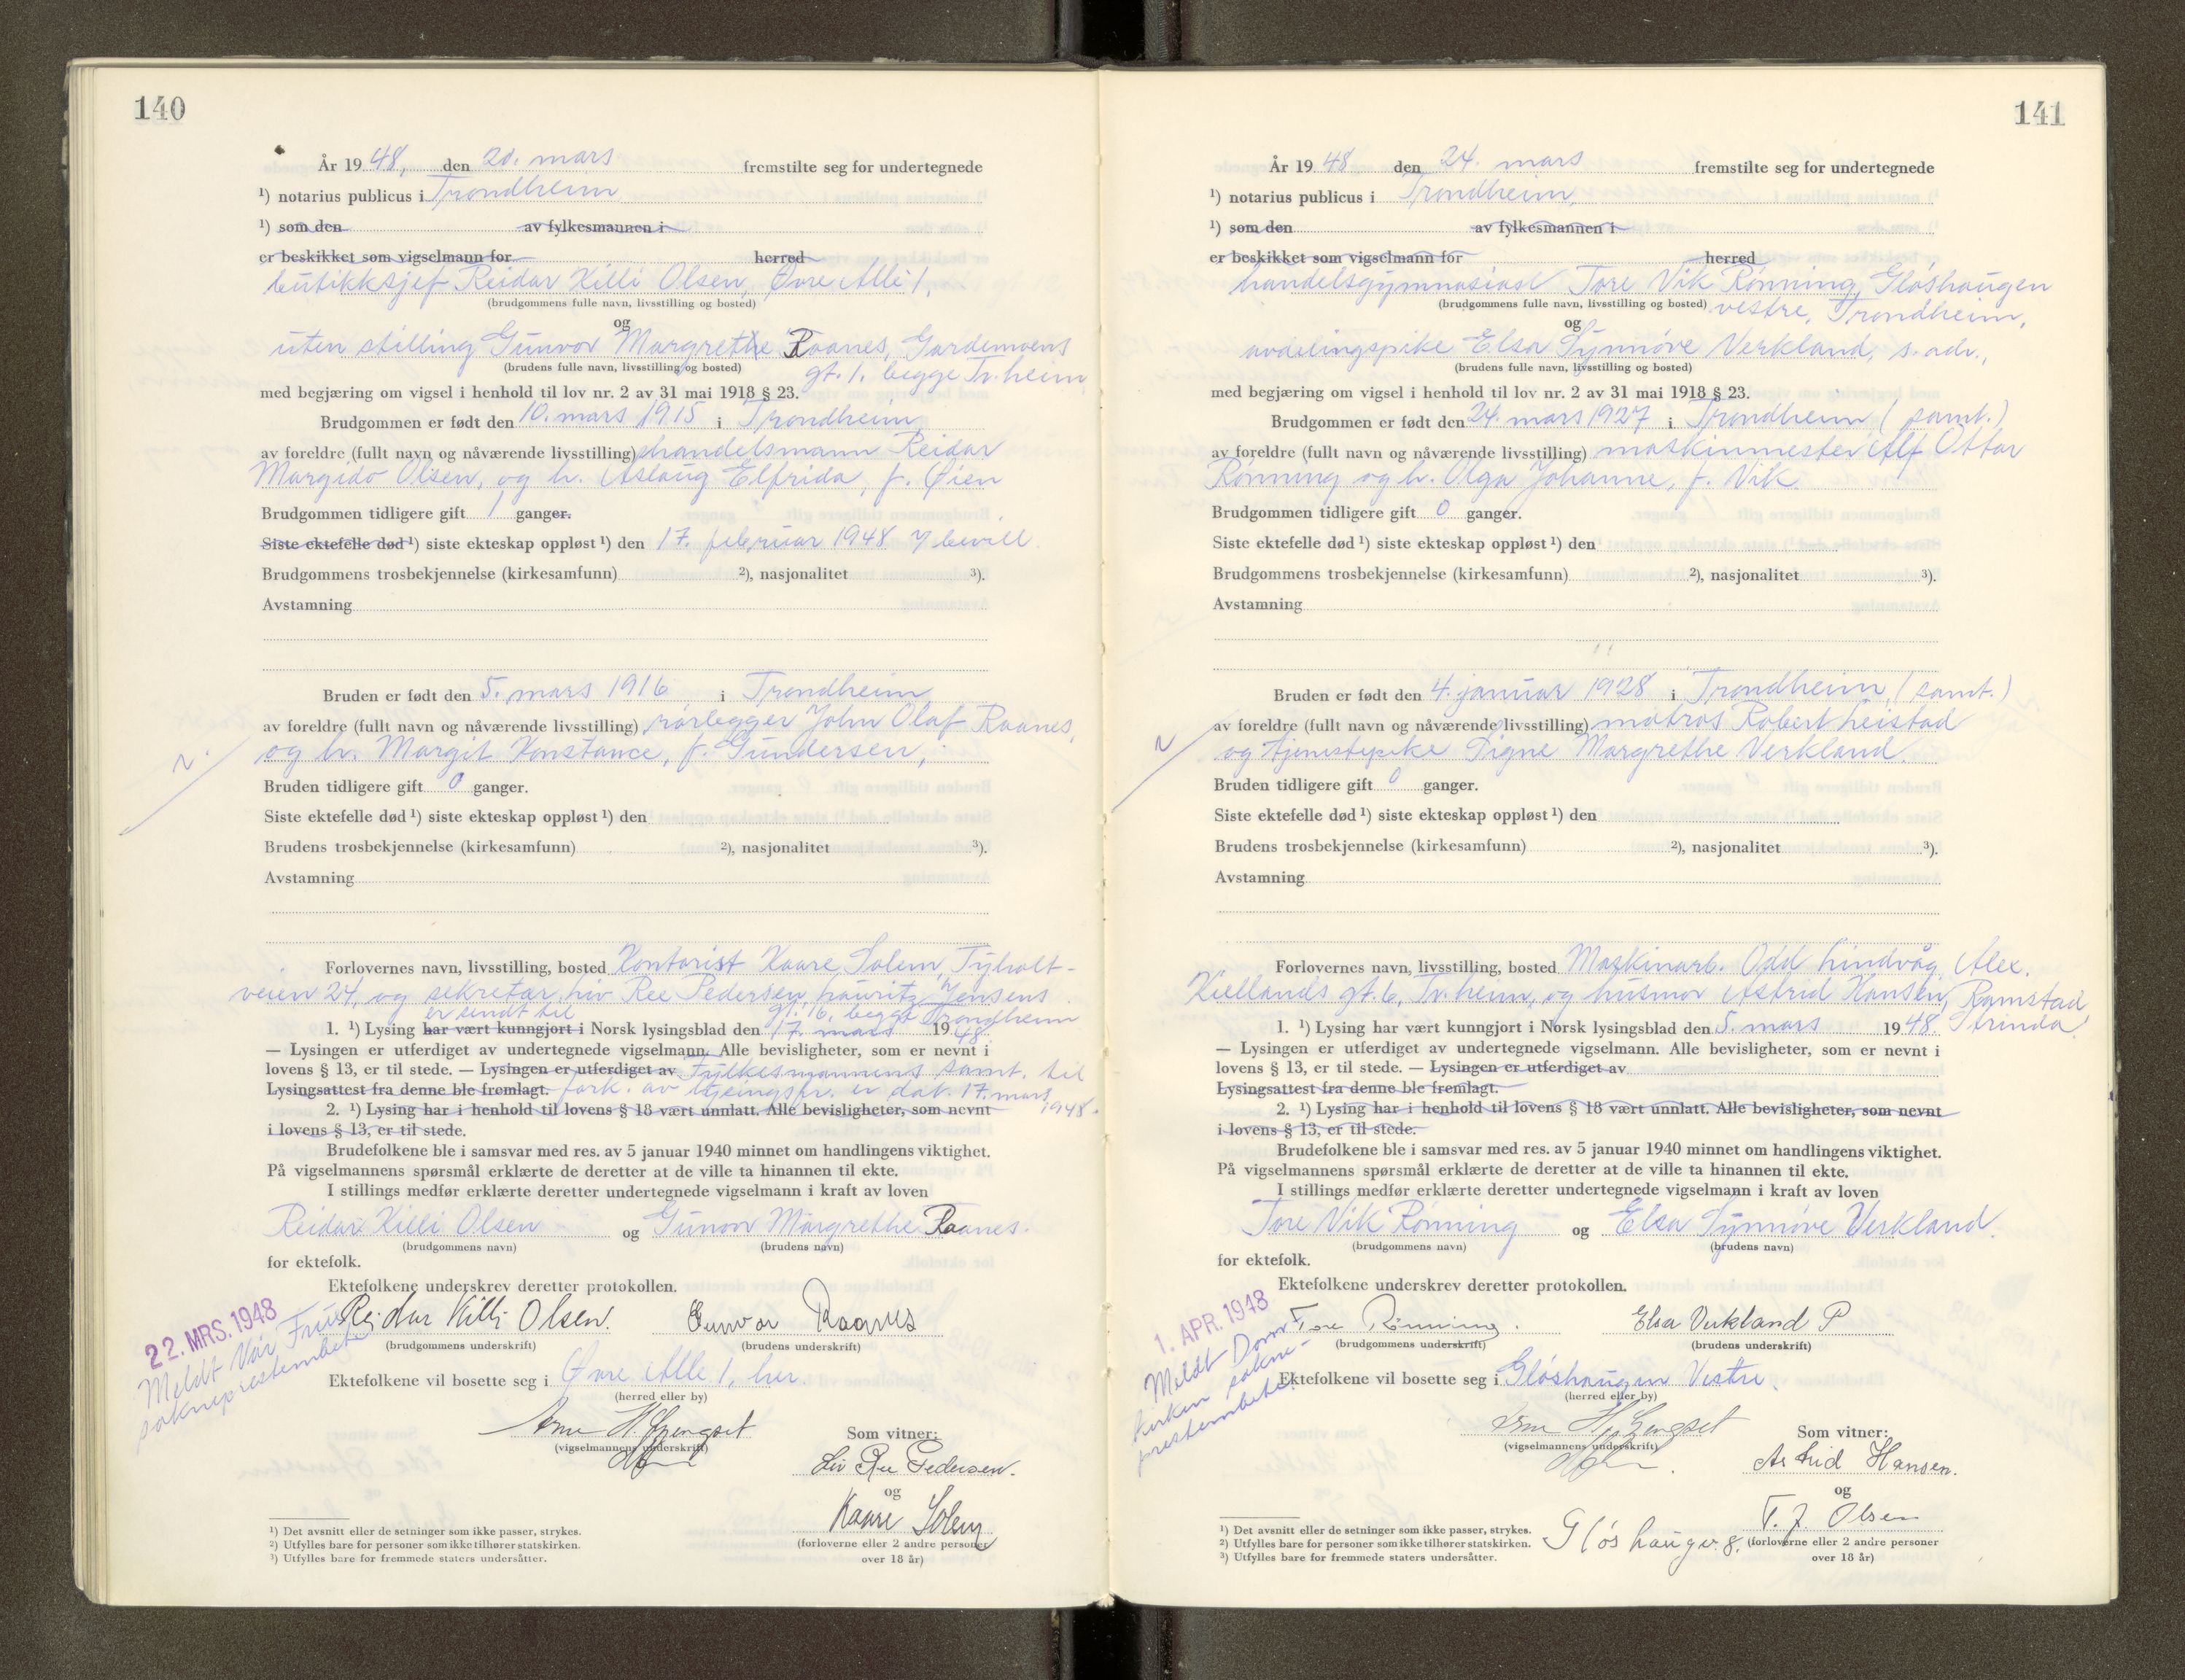 140
År 1948, den 20. mars fremstilte seg for undertegnede
¹) notarius publicus i Trondheim
¹) som den av fylkesmannen i
er beskikket som vigselmann for herred
butikksjef Reidar Killi Olsen, Øvre Allé 1,
(brudgommens fulle navn, livsstilling og bosted)
og
uten stilling Gunvor Margrethe Raanes, Gardemoens
(brudens fulle navn, livsstilling og bosted) gt. 1, begge Tr.heim
med begjæring om vigsel i henhold til lov nr. 2 av 31 mai 1918 § 23.
Brudgommen er født den 10. mars 1915 i Trondheim
av foreldre (fullt navn og nåværende livsstilling) handelsmann Reidar
Margido Olsen, og h. Aslaug Elfrida, f. Øien
Brudgommen tidligere gift 1 ganger.
Siste ektefelle død ¹) siste ekteskap oppløst ¹) den 17. februar 1948 v/ bevill.
Brudgommens trosbekjennelse (kirkesamfunn) ²), nasjonalitet ³).
Avstamning
Bruden er født den 5. mars 1916 i Trondheim
av foreldre (fullt navn og nåværende livsstilling) rørlegger John Olaf Raanes,
og h. Margit Konstance, f. Gundersen,
Bruden tidligere gift 0 ganger.
Siste ektefelle død ¹) siste ekteskap oppløst ¹) den
Brudens trosbekjennelse (kirkesamfunn) ²), nasjonalitet ³).
Avstamning
Forlovernes navn, livsstilling, bosted Kontorist Kaare Solem, Tyholt-
veien 24, og sekretær Liv Ree Pedersen, Lauritz Jensens
er sendt til gt. 16, begge Trondheim
1. ¹) Lysing har vært kunngjort i Norsk lysingsblad den 17. mars 1948.
— Lysingen er utferdiget av undertegnede vigselmann. Alle bevisligheter, som er nevnt i
lovens § 13, er til stede. — Lysingen er utferdiget av Fylkesmannens samt. til
Lysingsattest fra denne ble fremlagt. fork. av lysingsfr. er dat. 17. mars 1948.
2. ¹) Lysing har i henhold til lovens § 18 vært unnlatt. Alle bevisligheter, som nevnt
i lovens § 13, er til stede.
Brudefolkene ble i samsvar med res. av 5 januar 1940 minnet om handlingens viktighet.
På vigselmannens spørsmål erklærte de deretter at de ville ta hinannen til ekte.
I stillings medfør erklærte deretter undertegnede vigselmann i kraft av loven
Reidar Killi Olsen og Gunvor Margrethe Raanes.
(brudgommens navn) (brudens navn)
for ektefolk.
Ektefolkene underskrev deretter protokollen.
22. MRS. 1948
Meldt Vår Frue
sokneprestembete
Reidar Killi Olsen. Gunvor Raanes
(brudgommens underskrift) (brudens underskrift)
Ektefolkene vil bosette seg i Øvre Allé 1, her.
(herred eller by)
(vigselmannens underskrift)
Som vitner:
Liv Ree Pedersen.
og
Kaare Solem
(forloverne eller 2 andre personer
over 18 år)
¹) Det avsnitt eller de setninger som ikke passer, strykes.
²) Utfylles bare for personer som ikke tilhører statskirken.
³) Utfylles bare for fremmede staters undersåtter.
141
År 1948 den 24. mars fremstilte seg for undertegnede
¹) notarius publicus i Trondheim,
¹) som den av fylkesmannen i
er beskikket som vigselmann for herred
handelsgymnasiast Tore Vik Rønning, Gløshaugen
(brudgommens fulle navn, livsstilling og bosted) vestre, Trondheim,
og
avdelingspike Elsa Synnøve Verkland, s. adr.,
(brudens fulle navn, livsstilling og bosted)
med begjæring om vigsel i henhold til lov nr. 2 av 31 mai 1918 § 23.
Brudgommen er født den 24. mars 1927 i Trondheim (samt.)
av foreldre (fullt navn og nåværende livsstilling) maskinmester Alf Ottar
Rønning og h. Olga Johanne, f. Vik.
Brudgommen tidligere gift 0 ganger.
Siste ektefelle død ¹) siste ekteskap oppløst ¹) den
Brudgommens trosbekjennelse (kirkesamfunn) ²), nasjonalitet ³).
Avstamning
Bruden er født den 4. januar 1928 i Trondheim (samt.)
av foreldre (fullt navn og nåværende livsstilling) matros Robert Leistad
og tjenestepike Signe Margrethe Verkland.
Bruden tidligere gift 0 ganger.
Siste ektefelle død ¹) siste ekteskap oppløst ¹) den
Brudens trosbekjennelse (kirkesamfunn) ²), nasjonalitet ³).
Avstamning
Forlovernes navn, livsstilling, bosted Maskinarb. Odd Lindvåg, Alex.
Kiellands gt. 6, Tr.heim, og husmor Astrid Hansen, Ramstad,
1. ¹) Lysing har vært kunngjort i Norsk lysingsblad den 5. mars 1948. Strinda
— Lysingen er utferdiget av undertegnede vigselmann. Alle bevisligheter, som er nevnt i
lovens § 13, er til stede. — Lysingen er utferdiget av
Lysingsattest fra denne ble fremlagt.
2. ¹) Lysing har i henhold til lovens § 18 vært unnlatt. Alle bevisligheter, som nevnt
i lovens § 13, er til stede.
Brudefolkene ble i samsvar med res. av 5 januar 1940 minnet om handlingens viktighet.
På vigselmannens spørsmål erklærte de deretter at de ville ta hinannen til ekte.
I stillings medfør erklærte deretter undertegnede vigselmann i kraft av loven
Tore Vik Rønning og Elsa Synnøve Verkland.
(brudgommens navn) (brudens navn)
for ektefolk.
Ektefolkene underskrev deretter protokollen.
1. APR. 1948
Meldt Dom-
kirken sokne-
prestembete.
Tore Rønning. Elsa Verkland
(brudgommens underskrift) (brudens underskrift)
Ektefolkene vil bosette seg i Gløshaugen Vestre.
(herred eller by)
(vigselmannens underskrift)
Som vitner:
Astrid Hansen.
og
T. J. Olsen
Gløshaugv. 8.
(forloverne eller 2 andre personer
over 18 år)
¹) Det avsnitt eller de setninger som ikke passer, strykes.
²) Utfylles bare for personer som ikke tilhører statskirken.
³) Utfylles bare for fremmede staters undersåtter.